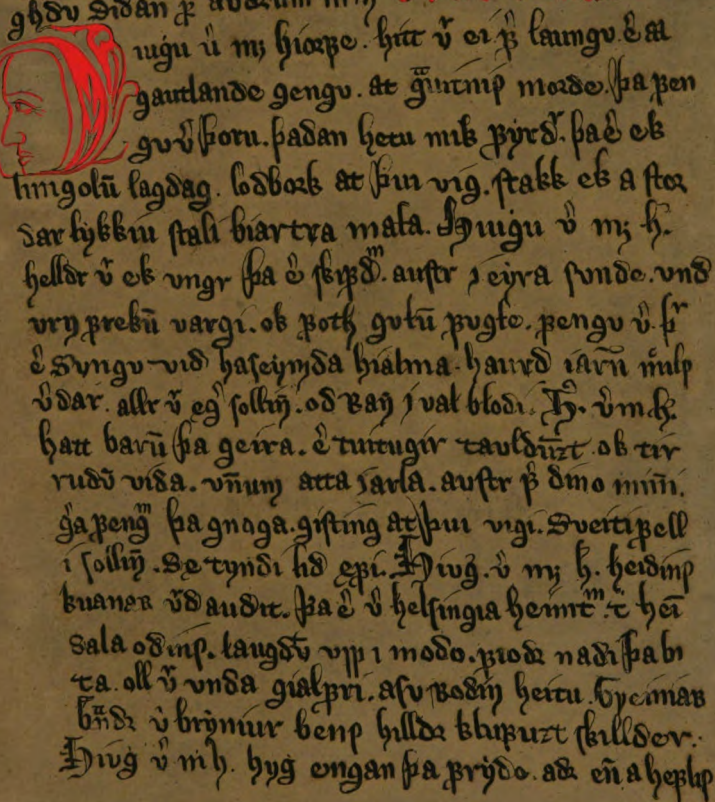 iugu v̄ mȝ hiorþe. hitt v̄ ei f̄ laungu. ē a
gautlande gengu. at gᵃuitnis morde. þa fen
gu v̄ þoru. þadan hetu mik fyrd᷎. þa ē ek
lingolū lagdag. lodbork at þui vig. stakk ek a stor
dar lykkiu stali biartra mala. Hiugu v̄ mȝ h.
helldr v̄ ek vngr þa ē skifdᵐ. austr j eyra sunde. vnd
vrn frekū vargi. ok foth gulū fugle. fengu v̄. þr
ē sungu vid haseymda hialma. haurd iarn
v̄dar. allr v̄ egͥ sollin. od Rafn j val blodi. H. v̄ m. h.
hatt barū þa geira. ē tuitugir tauldūzt. ok tir
rudū vida. vn̄um atta iarla. austr f̄ dino minni.
gᵃ fengᵐ þa gnoga. gisting at þui vigi. Sveiti fell
i sollin. Se tyndi lid efi. Hiug. v̄ mȝ h. hedins
kuanar v̄d audit. þa ē v̄ helsingia heimtᵐ. t̄ hei
sala odins. laugdū vpp i modo. þa bi
ta. oll v̄ vnda gialfri. rodin heitu. Greniar
bᵃndr v̄ bryniur hilldr klufuzt skilldor.
Hiug v̄ m h. hyg ongan þa frydo. adr en̄ a heflis